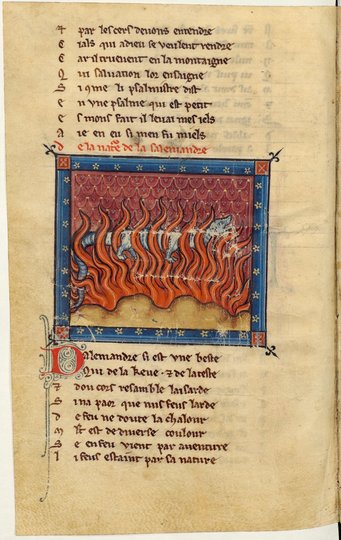 ⁊ par les cers deuons entendre
C ials qui a dieu se veulent rendre
C ar il truevent en la montaigne
Q ui saluation lor ensaigne
S i 9me li psalmistre dist
E n vne psalme qui est petit
E s mons fait il leuai mes iels
A ie en eu si men fu miels
D e la nature de la salemandre
Salemandre si est vne beste
Qui de la keue ⁊ de la teste
⁊ dou cors resamble laisarde
S i na paor que nus feus larde
D e feu ne doute la chalour
M lt est de diuerse coulour
S e en feu vient par auenture
L i feus estaint par sa nature